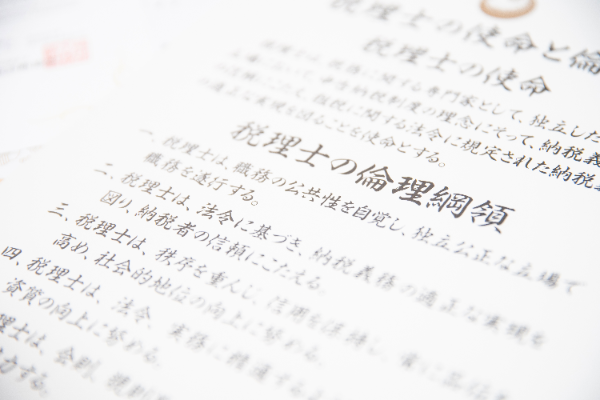 税理士の使命と倫
税理士の使命
税理士は、税務に関する専門家として、独立した
納税義務
に関する法令に規定された納税
を図ることを使命とする。
税理士の倫理綱領
一、税理士は、職務の公共性を自覚し、独立公正な立場で
職務を遂行する。
二、税理士は、法令に基づき、納税義務の適正な実現を
図り、納税者の信頼にこたえる。
三、税理士は、秩序を重んじ、信用を保持し、常に
高め、社会的地位の向上に努める。
四、税理士は、法令、実務に精通する
資質の向上に努める。
理士は、会則、規則
力する。